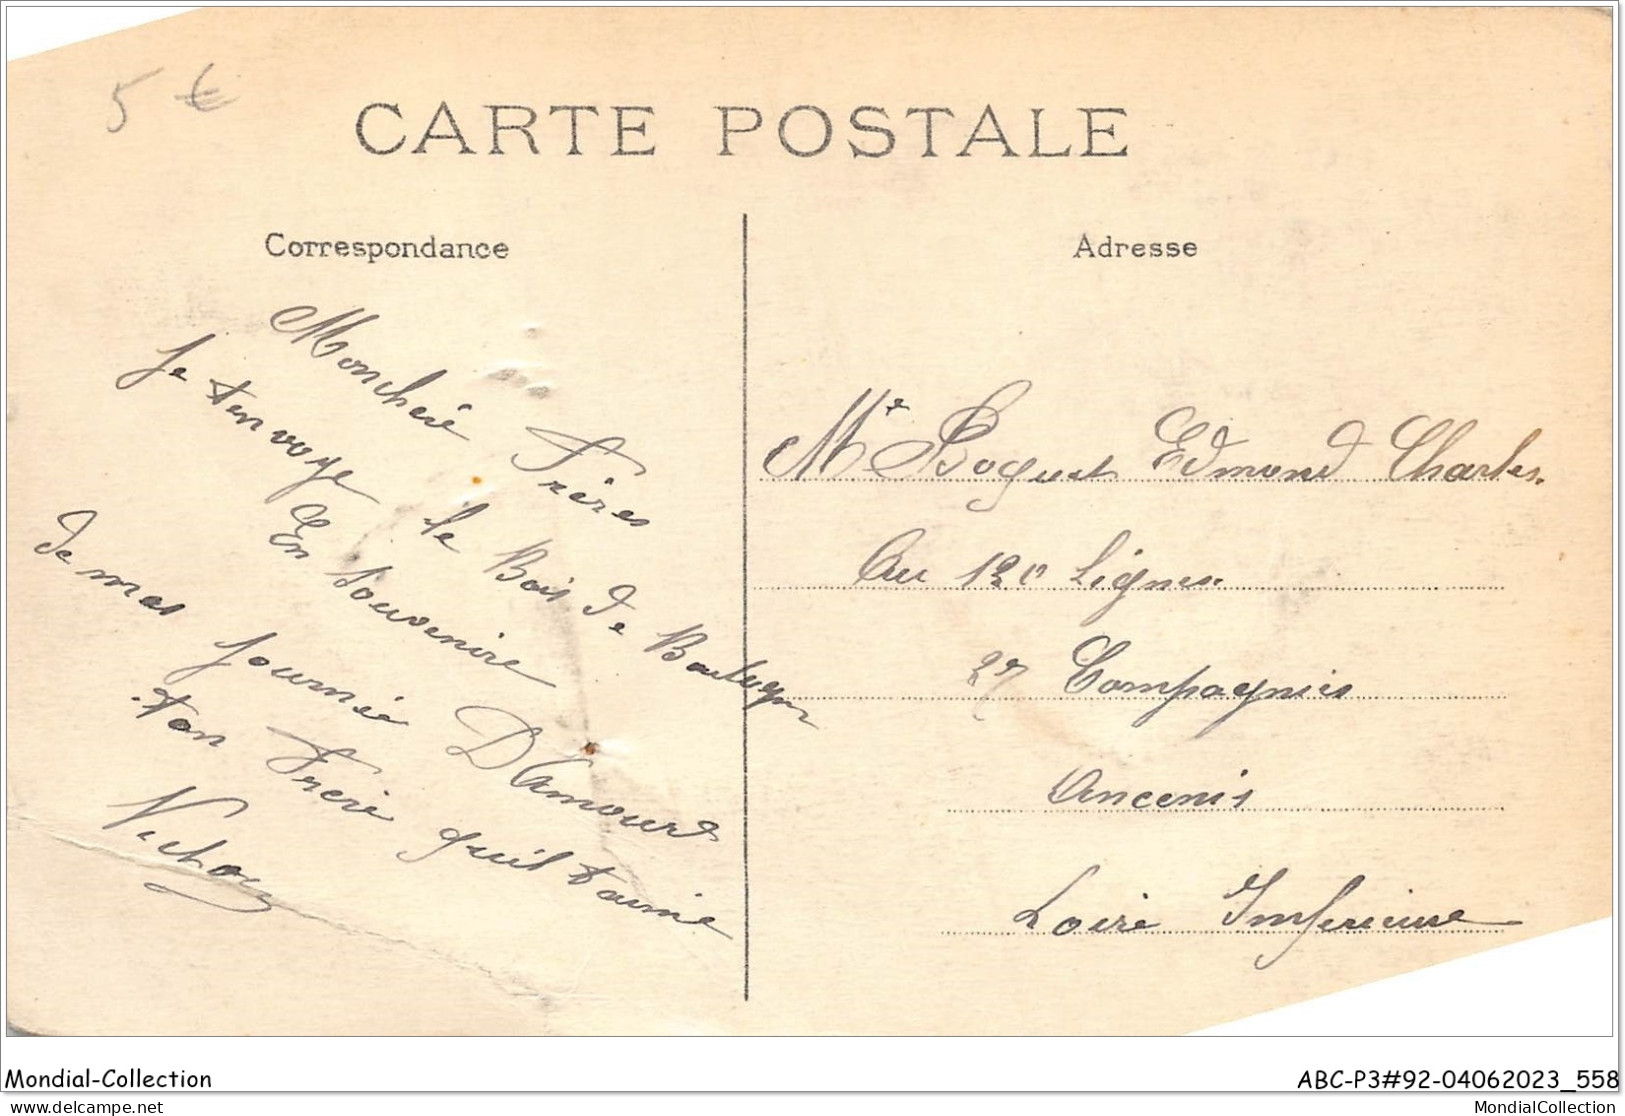 5 €
CARTE POSTALE
Correspondance
Adresse
Moncheré Frères
Je tenvoye le Bois de Boulogn
En Souvenire
de mes journée D'Amours
ton Freré quil taimé
Victor
Mr Boquet Edmond Charles.
Au 120 Lignes.
27 Compagnies
Ancenis
Loiré Imferieure
Mondial-Collection
ABC-P3#92-04062023_558
delcampe.net
MondialCollection